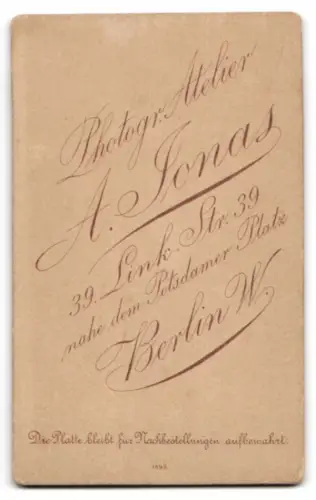 Photogr. Atelier
A. Jonas
39. Link-Str. 39
nahe dem Potsdamer Platz
Berlin W.
Die Platte bleibt für Nachbestellungen aufbewahrt.